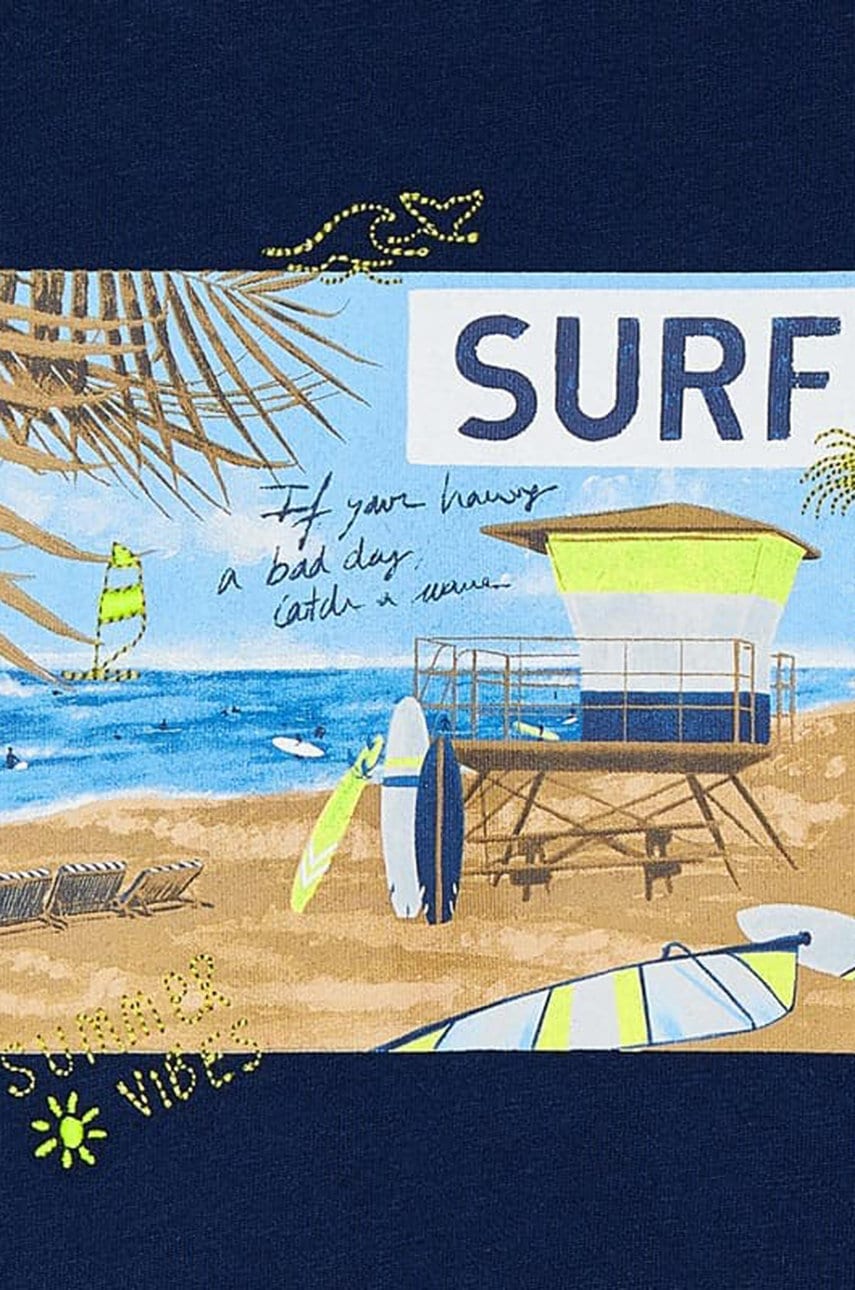 SURF
If your having
a bad day,
catch a wave
SUMMER
VIBES